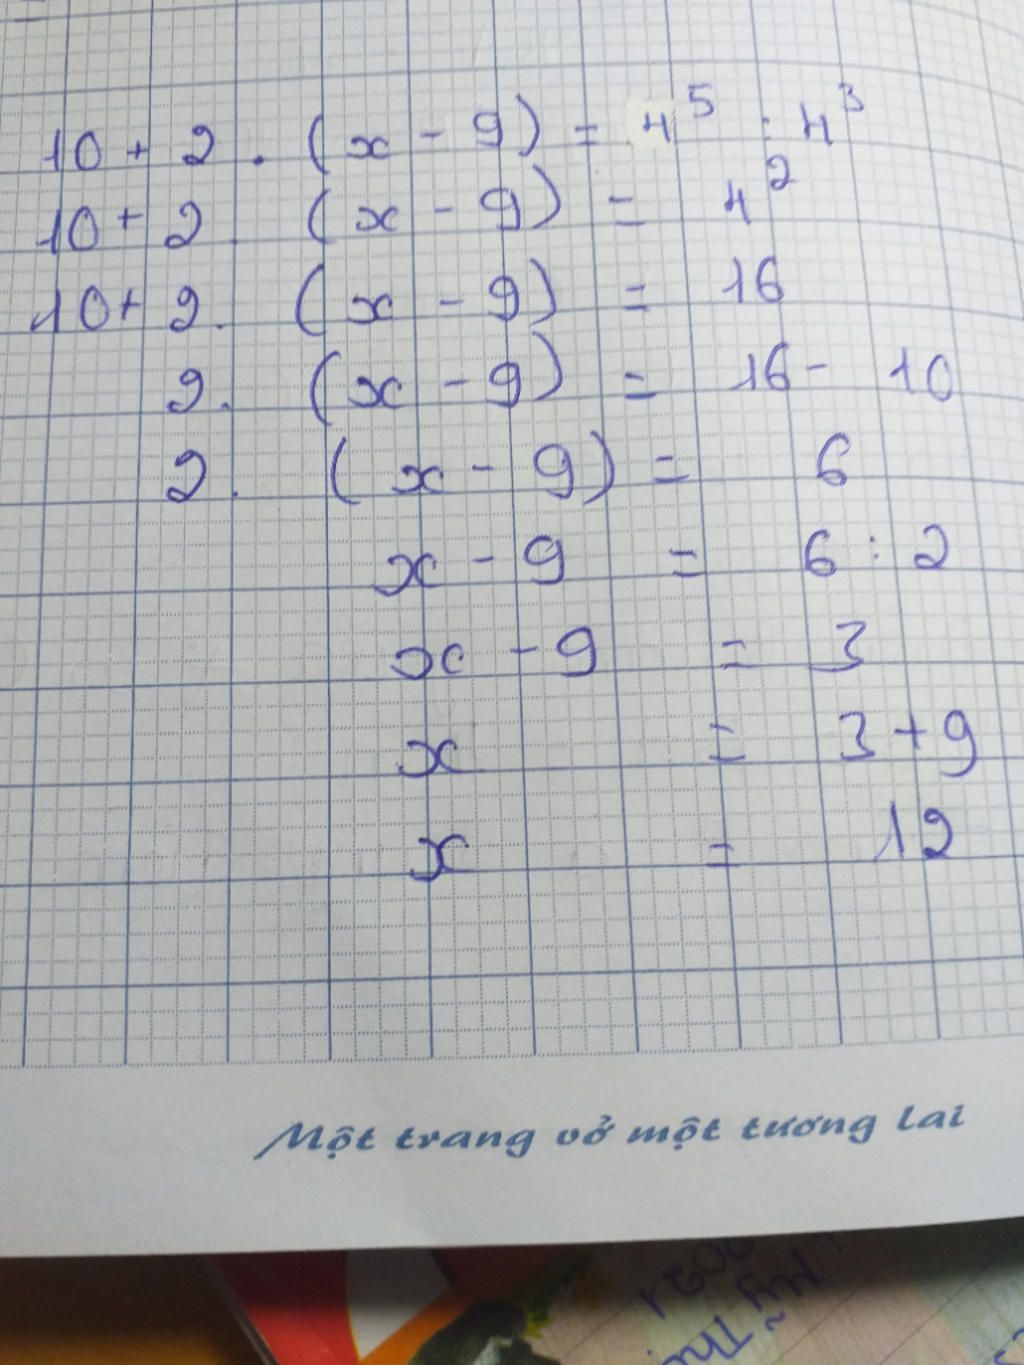 10 + 2 . (x - 9) = 4⁵ : 4³
10 + 2 . (x - 9) = 4²
10 + 2 . (x - 9) = 16
2 . (x - 9) = 16 - 10
2 . (x - 9) = 6
x - 9 = 6 : 2
x - 9 = 3
x = 3 + 9
x = 12
Một trang vở một tương lai